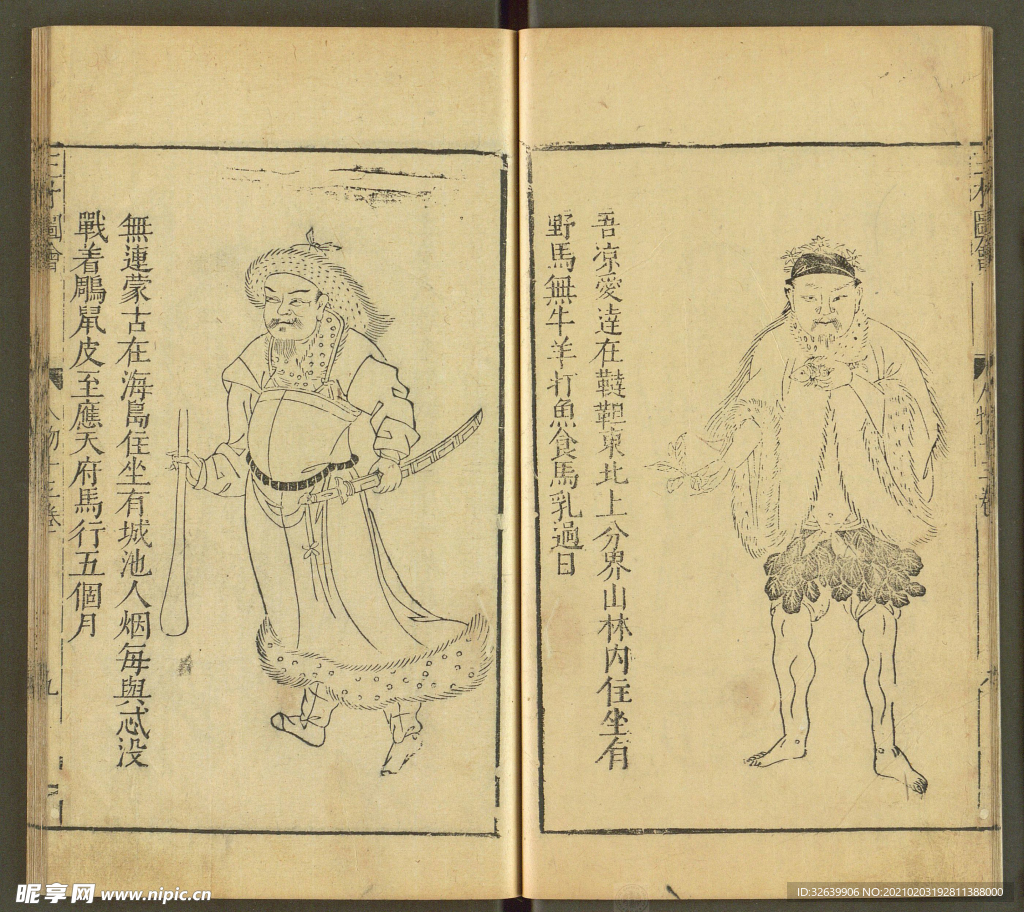 三才圖會
人物十三卷
吾凉愛達在韃靼東北上分界山林內住坐有
野馬無牛羊打魚食馬乳過日
無連蒙古在海島住坐有城池人烟每與忒没
戰着鵰鼠皮至應天府馬行五個月
三才圖會
人物十三卷
九
昵享网 www.nipic.cn
ID:32639906 NO:20210203192811388000